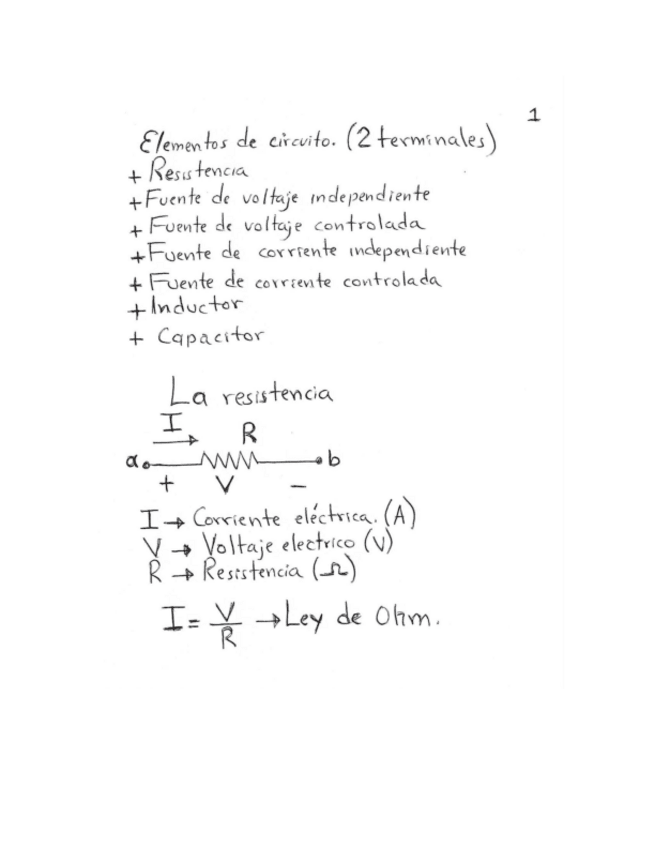 1
Elementos de circuito. (2 terminales)
+ Resistencia
+ Fuente de voltaje independiente
+ Fuente de voltaje controlada
+ Fuente de corriente independiente
+ Fuente de corriente controlada
+ Inductor
+ Capacitor
La resistencia
I
R
a b
+ V −
I → Corriente eléctrica. (A)
V → Voltaje electrico (V)
R → Resistencia (Ω)
I = V/R → Ley de Ohm.